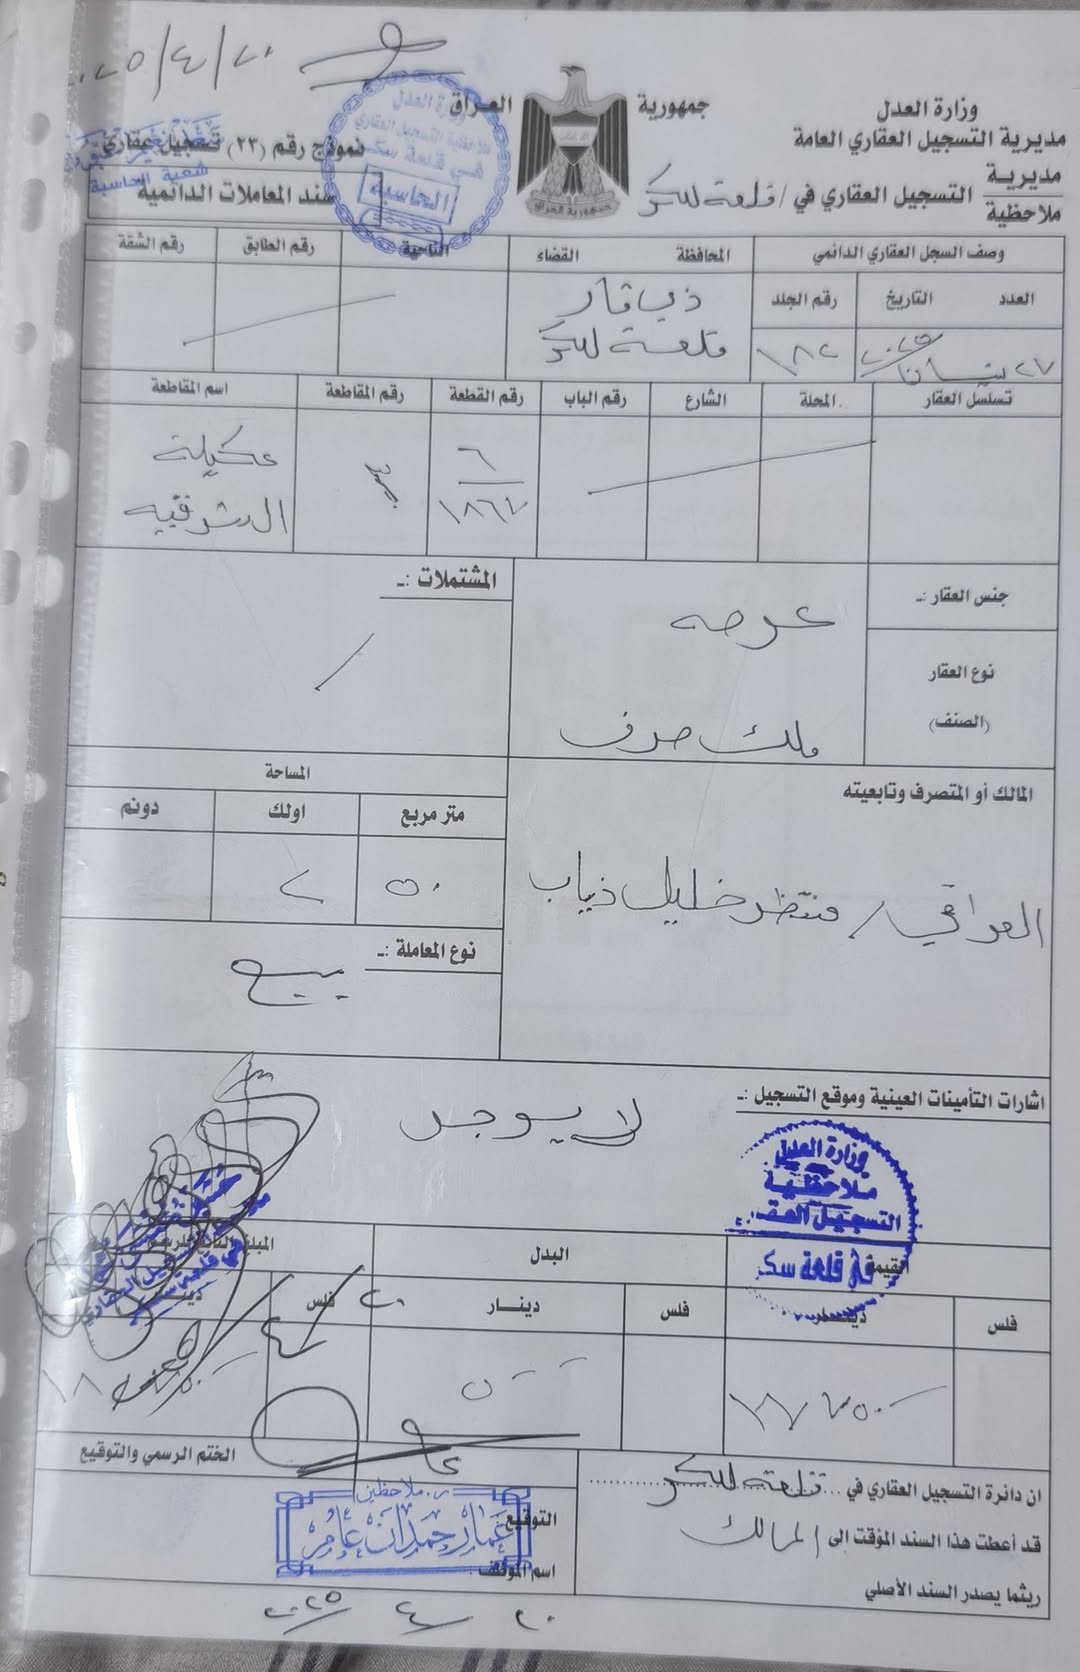 ٢٠٢٥/٤/٢٠
وزارة العدل
مديرية التسجيل العقاري العامة
مديرية
ملاحظية
التسجيل العقاري في / قلعة سكر
جمهورية العراق
جمهورية العراق
نموذج رقم (٢٣) تسجيل عقاري
سند المعاملات الدائمية
وزارة العدل
ملاحظية التسجيل العقاري
في قلعة سكر
الحاسبة
شعبة الحاسبة
وصف السجل العقاري الدائمي
المحافظة
القضاء
الناحية
رقم الطابق
رقم الشقة
العدد
التاريخ
رقم الجلد
ذي قار
قلعة سكر
٢٧
نيسان
٢٠٢٥
١٨٢
تسلسل العقار
المحلة
الشارع
رقم الباب
رقم القطعة
رقم المقاطعة
اسم المقاطعة
٦
١٨٦٧
عكيلة
الشرقيه
جنس العقار :ـ
عرصه
المشتملات :ـ
نوع العقار
(الصنف)
ملك صرف
المالك أو المتصرف وتابعيته
العراقي / منتظر خليل ذياب
المساحة
متر مربع
اولك
دونم
٥٠
٢
نوع المعاملة :ـ
بيع
اشارات التأمينات العينية وموقع التسجيل :ـ
لا يوجد
وزارة العدل
ملاحظية
التسجيل العقاري
في قلعة سكر
القيمة
البدل
فلس
دينار
فلس
دينـــار
فلس
ان دائرة التسجيل العقاري في قلعة سكر
قد أعطت هذا السند المؤقت الى / المالك
ريثما يصدر السند الأصلي
الختم الرسمي والتوقيع
التوقيع
اسم الموظف :
ر. ملاحظين
عمار حمدان عامر
٢٠ / ٤ / ٢٠٢٥